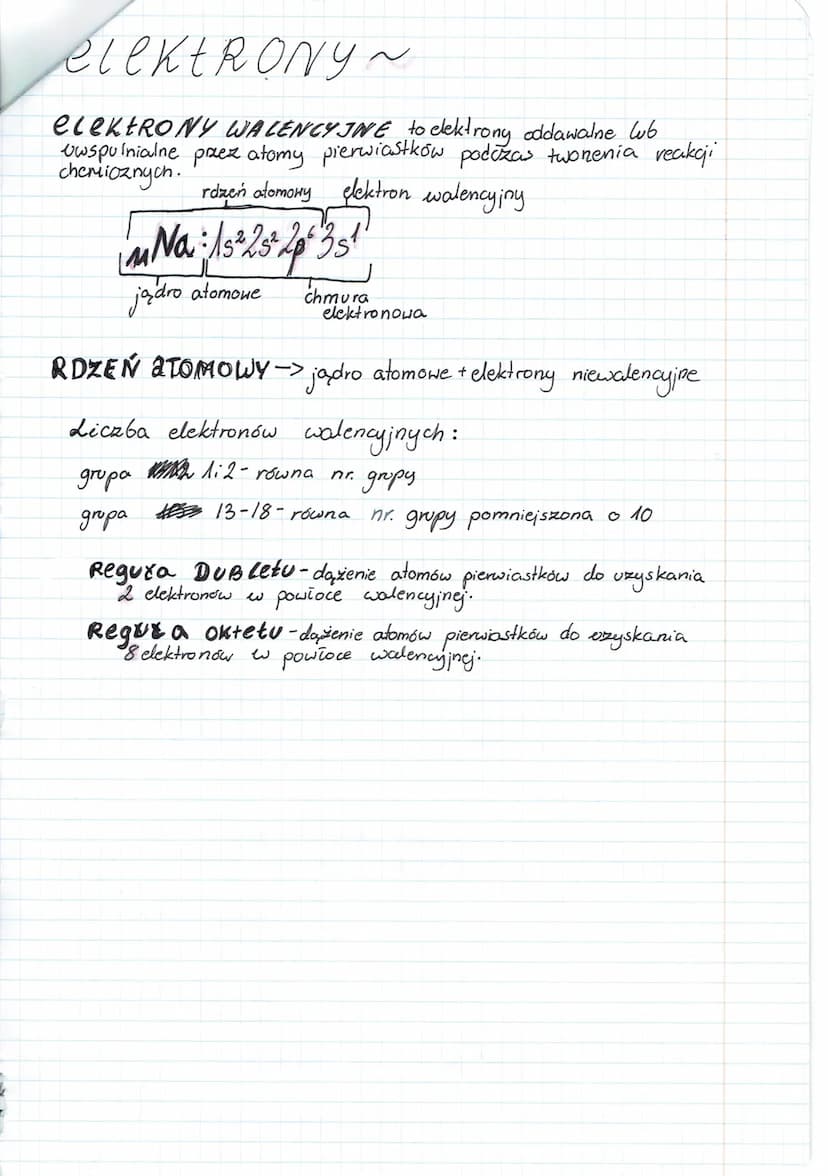 elektRONY~
elektRONY WALENCYJNE to elektrony oddawalne lub
uwspulnialne przez atomy pierwiastków podczas tworzenia reakcji
chemicznych.
rdzeń atomowy elektron walencyjny
₁₁Na:1s²2s²2p⁶3s¹
jądro atomowe chmura
elektronowa
RDZEŃ ATOMOWY -> jądro atomowe + elektrony niewalencyjne
Liczba elektronów walencyjnych:
grupa 1i2- równa nr. grupy
grupa 13-18- równa nr. grupy pomniejszona o 10
Reguła DUBLetu - dążenie atomów pierwiastków do uzyskania
2 elektronów w powłoce walencyjnej.
Reguła oktetu - dążenie atomów pierwiastków do uzyskania
8 elektronów w powłoce walencyjnej.